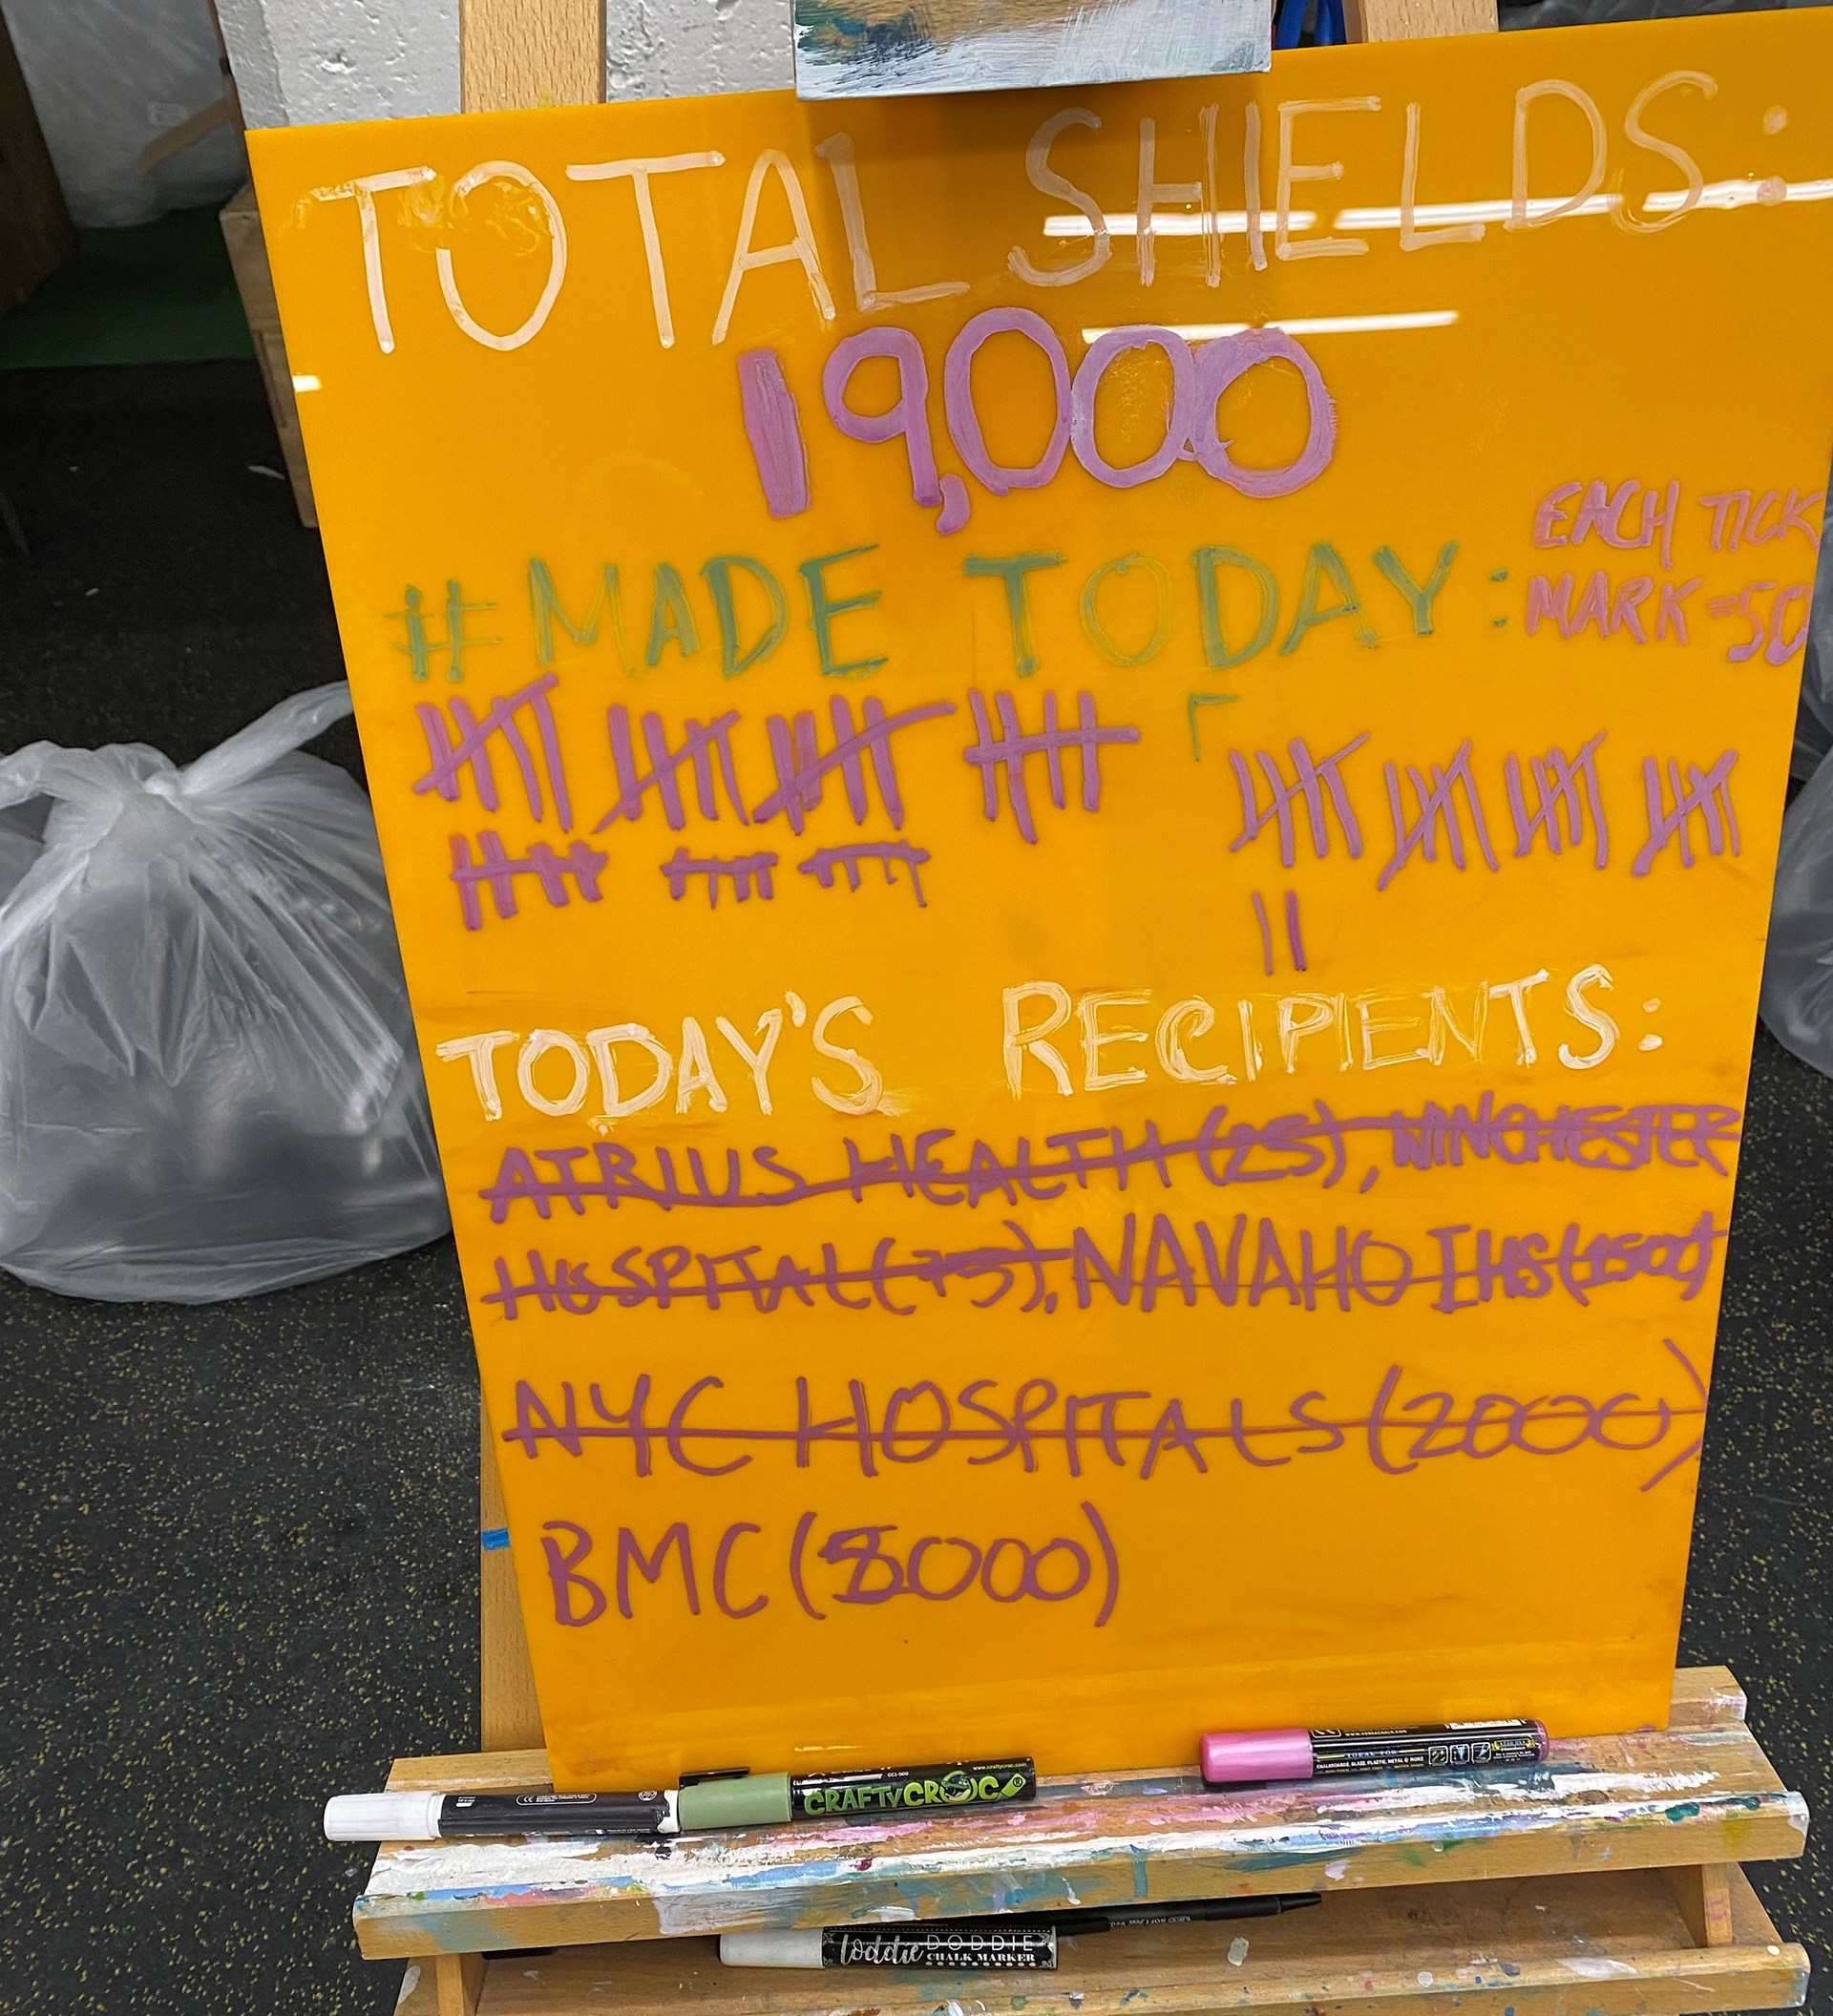 TOTAL SHIELDS:
19,000
EACH TICK
# MADE TODAY: MARK = 50
TODAY'S RECIPIENTS:
ATRIUS HEALTH (25), WINCHESTER
HOSPITAL (75), NAVAHO IHS (1500)
NYC HOSPITALS (2000)
BMC ( 000)
CRAFTY CROC®
loddie DODDIE
CHALK MARKER